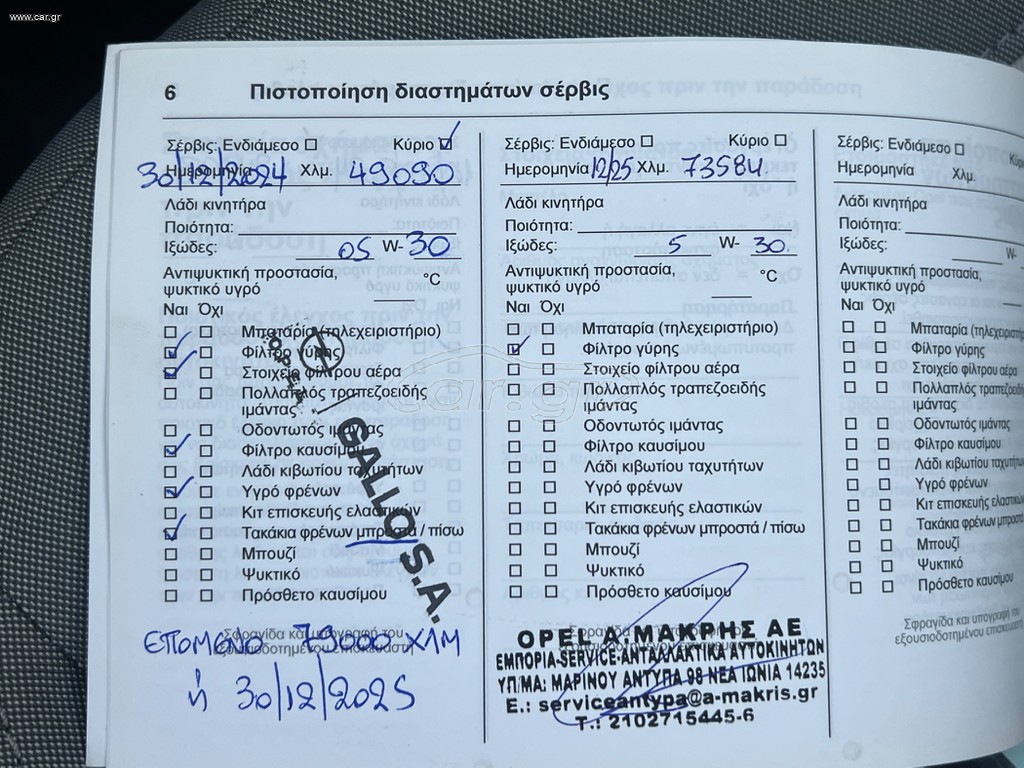 www.car.gr
6 Πιστοποίηση διαστημάτων σέρβις
Σέρβις: Ενδιάμεσο Κύριο
Ημερομηνία 30/12/2024 Χλμ. 49090
Λάδι κινητήρα
Ποιότητα:
Ιξώδες: 05 W- 30
Αντιψυκτική προστασία,
ψυκτικό υγρό °C
Ναι Όχι
Μπαταρία (τηλεχειριστήριο)
Φίλτρο γύρης
Στοιχείο φίλτρου αέρα
Πολλαπλός τραπεζοειδής
ιμάντας
Οδοντωτός ιμάντας
Φίλτρο καυσίμου
Λάδι κιβωτίου ταχυτήτων
Υγρό φρένων
Κιτ επισκευής ελαστικών
Τακάκια φρένων μπροστά / πίσω
Μπουζί
Ψυκτικό
Πρόσθετο καυσίμου
Σφραγίδα και υπογραφή του
εξουσιοδοτημένου επισκευαστή
OPEL
GALLO S.A.
ΕΠΟΜΕΝΟ 79000 ΧΛΜ
ή 30/12/2025
Σέρβις: Ενδιάμεσο Κύριο
Ημερομηνία 12/25 Χλμ. 73584.
Λάδι κινητήρα
Ποιότητα:
Ιξώδες: 5 W- 30.
Αντιψυκτική προστασία,
ψυκτικό υγρό °C
Ναι Όχι
Μπαταρία (τηλεχειριστήριο)
Φίλτρο γύρης
Στοιχείο φίλτρου αέρα
Πολλαπλός τραπεζοειδής
ιμάντας
Οδοντωτός ιμάντας
Φίλτρο καυσίμου
Λάδι κιβωτίου ταχυτήτων
Υγρό φρένων
Κιτ επισκευής ελαστικών
Τακάκια φρένων μπροστά / πίσω
Μπουζί
Ψυκτικό
Πρόσθετο καυσίμου
OPEL Α.ΜΑΚΡΗΣ ΑΕ
ΕΜΠΟΡΙΑ-SERVICE-ΑΝΤΑΛΛΑΚΤΙΚΑ ΑΥΤΟΚΙΝΗΤΩΝ
ΥΠ/ΜΑ: ΜΑΡΙΝΟΥ ΑΝΤΥΠΑ 98 ΝΕΑ ΙΩΝΙΑ 14235
E.: serviceantypa@a-makris.gr
Τ.: 2102715445-6
Σέρβις: Ενδιάμεσο Κύριο
Ημερομηνία Χλμ.
Λάδι κινητήρα
Ποιότητα:
Ιξώδες: W-
Αντιψυκτική προστασία,
ψυκτικό υγρό
Ναι Όχι
Μπαταρία (τηλεχειριστήριο
Φίλτρο γύρης
Στοιχείο φίλτρου αέρα
Πολλαπλός τραπεζοειδής
ιμάντας
Οδοντωτός ιμάντας
Φίλτρο καυσίμου
Λάδι κιβωτίου ταχυτήτων
Υγρό φρένων
Κιτ επισκευής ελαστικών
Τακάκια φρένων μπροστά
Μπουζί
Ψυκτικό
Πρόσθετο καυσίμου
Σφραγίδα και υπογραφή του
εξουσιοδοτημένου επισκευαστή
car.gr